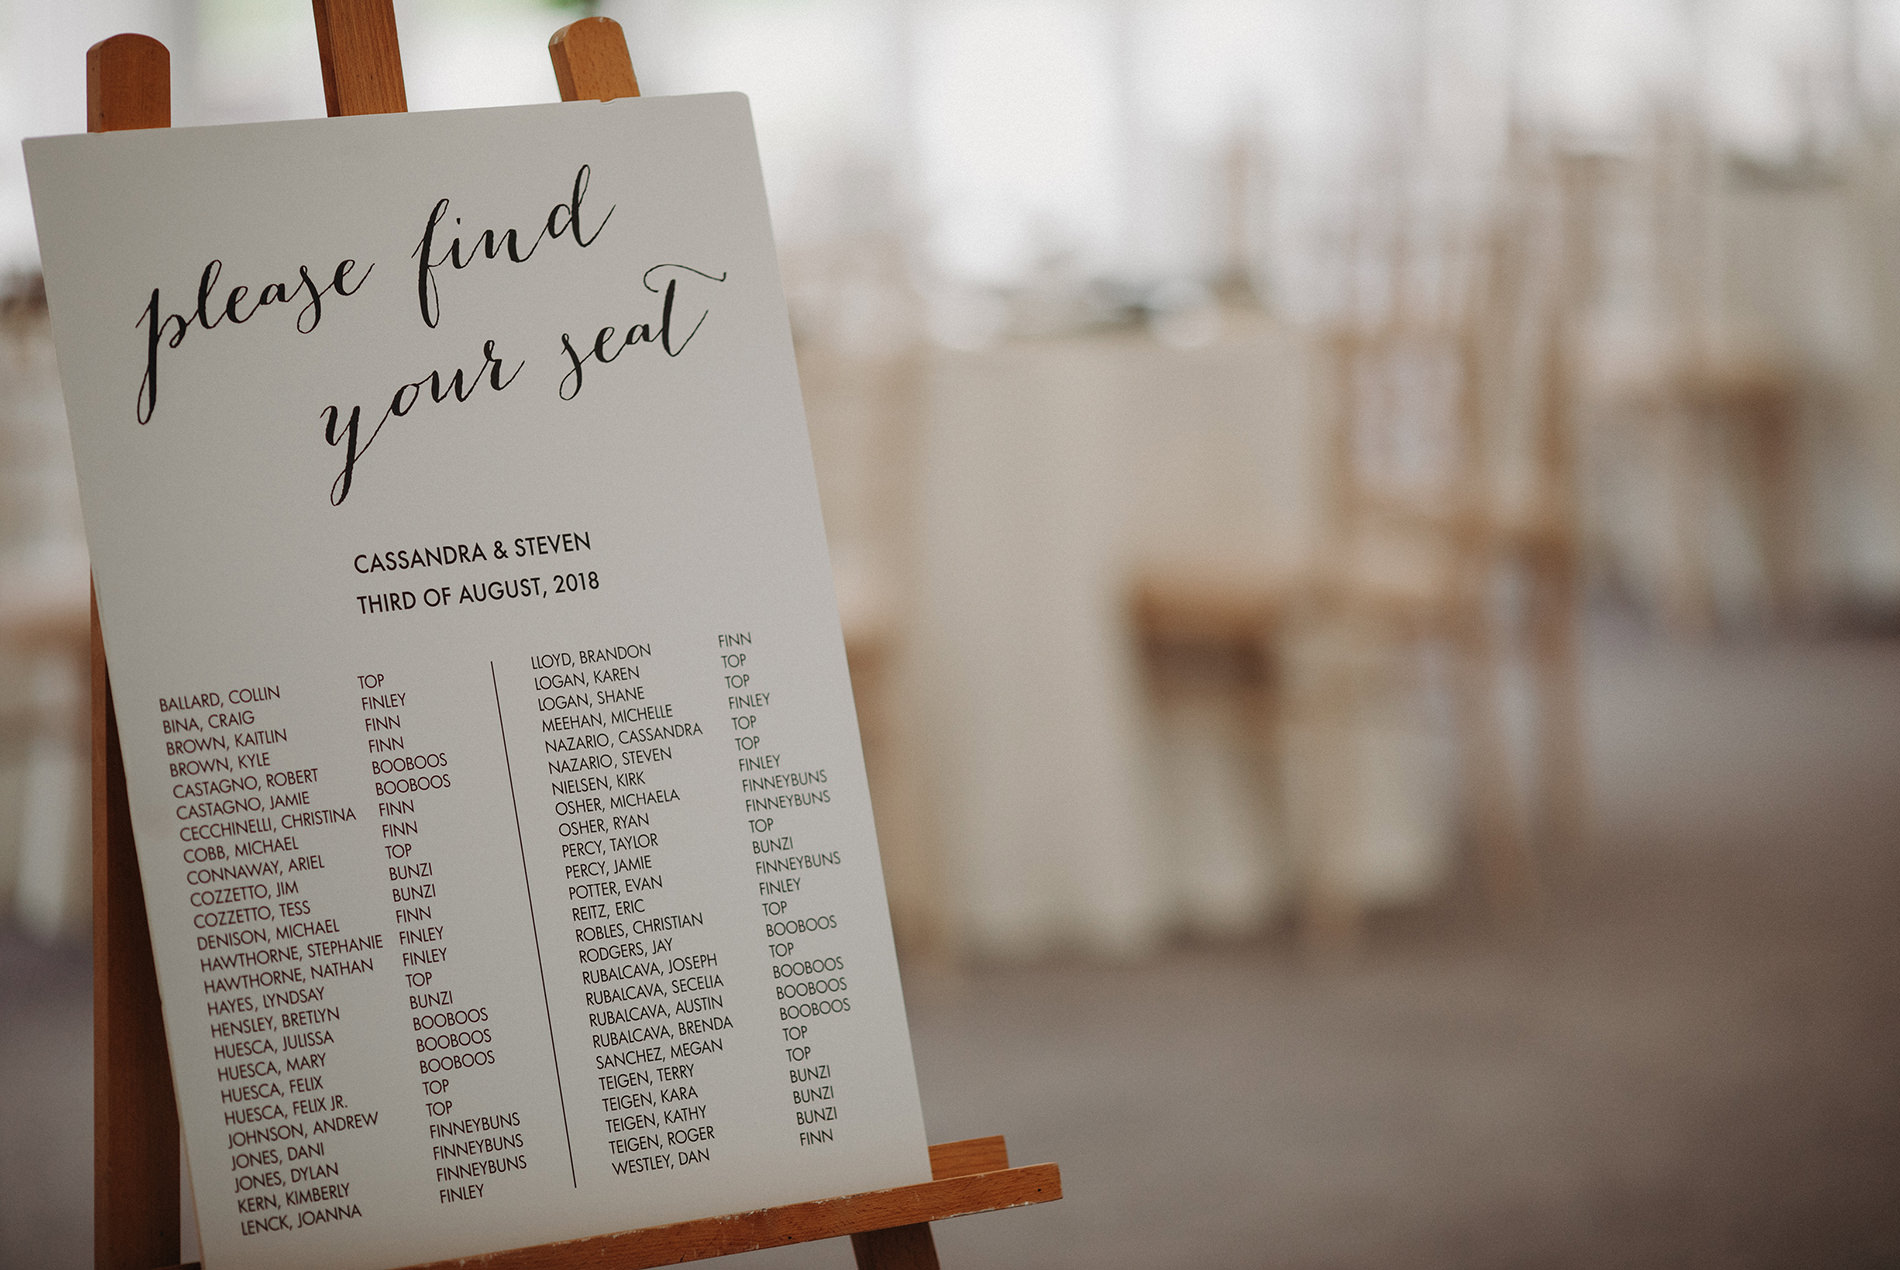 please find
your seat
CASSANDRA & STEVEN
THIRD OF AUGUST, 2018
BALLARD, COLLIN TOP
BINA, CRAIG FINLEY
BROWN, KAITLIN FINN
BROWN, KYLE FINN
CASTAGNO, ROBERT BOOBOOS
CASTAGNO, JAMIE BOOBOOS
CECCHINELLI, CHRISTINA FINN
COBB, MICHAEL FINN
CONNAWAY, ARIEL TOP
COZZETTO, JIM BUNZI
COZZETTO, TESS BUNZI
DENISON, MICHAEL FINN
HAWTHORNE, STEPHANIE FINLEY
HAWTHORNE, NATHAN FINLEY
HAYES, LYNDSAY TOP
HENSLEY, BRETLYN BUNZI
HUESCA, JULISSA BOOBOOS
HUESCA, MARY BOOBOOS
HUESCA, FELIX BOOBOOS
HUESCA, FELIX JR. TOP
JOHNSON, ANDREW TOP
JONES, DANI FINNEYBUNS
JONES, DYLAN FINNEYBUNS
KERN, KIMBERLY FINNEYBUNS
LENCK, JOANNA FINLEY
LLOYD, BRANDON FINN
LOGAN, KAREN TOP
LOGAN, SHANE TOP
MEEHAN, MICHELLE FINLEY
NAZARIO, CASSANDRA TOP
NAZARIO, STEVEN TOP
NIELSEN, KIRK FINLEY
OSHER, MICHAELA FINNEYBUNS
OSHER, RYAN FINNEYBUNS
PERCY, TAYLOR TOP
PERCY, JAMIE BUNZI
POTTER, EVAN FINNEYBUNS
REITZ, ERIC FINLEY
ROBLES, CHRISTIAN TOP
RODGERS, JAY BOOBOOS
RUBALCAVA, JOSEPH TOP
RUBALCAVA, SECELIA BOOBOOS
RUBALCAVA, AUSTIN BOOBOOS
RUBALCAVA, BRENDA BOOBOOS
SANCHEZ, MEGAN TOP
TEIGEN, TERRY TOP
TEIGEN, KARA BUNZI
TEIGEN, KATHY BUNZI
TEIGEN, ROGER BUNZI
WESTLEY, DAN FINN